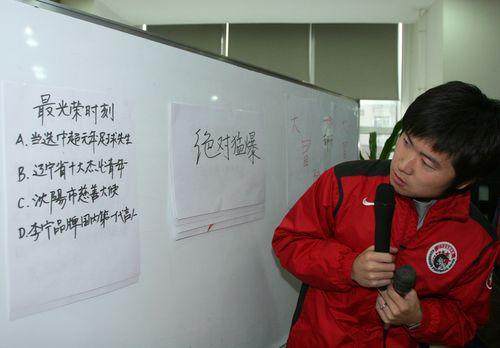 最光荣时刻
A.当选中超元年足球先生
B.辽宁省十大杰出青年
C.沈陽市慈善大使
D.李宁品牌国内第一代言人
绝对猛爆
大